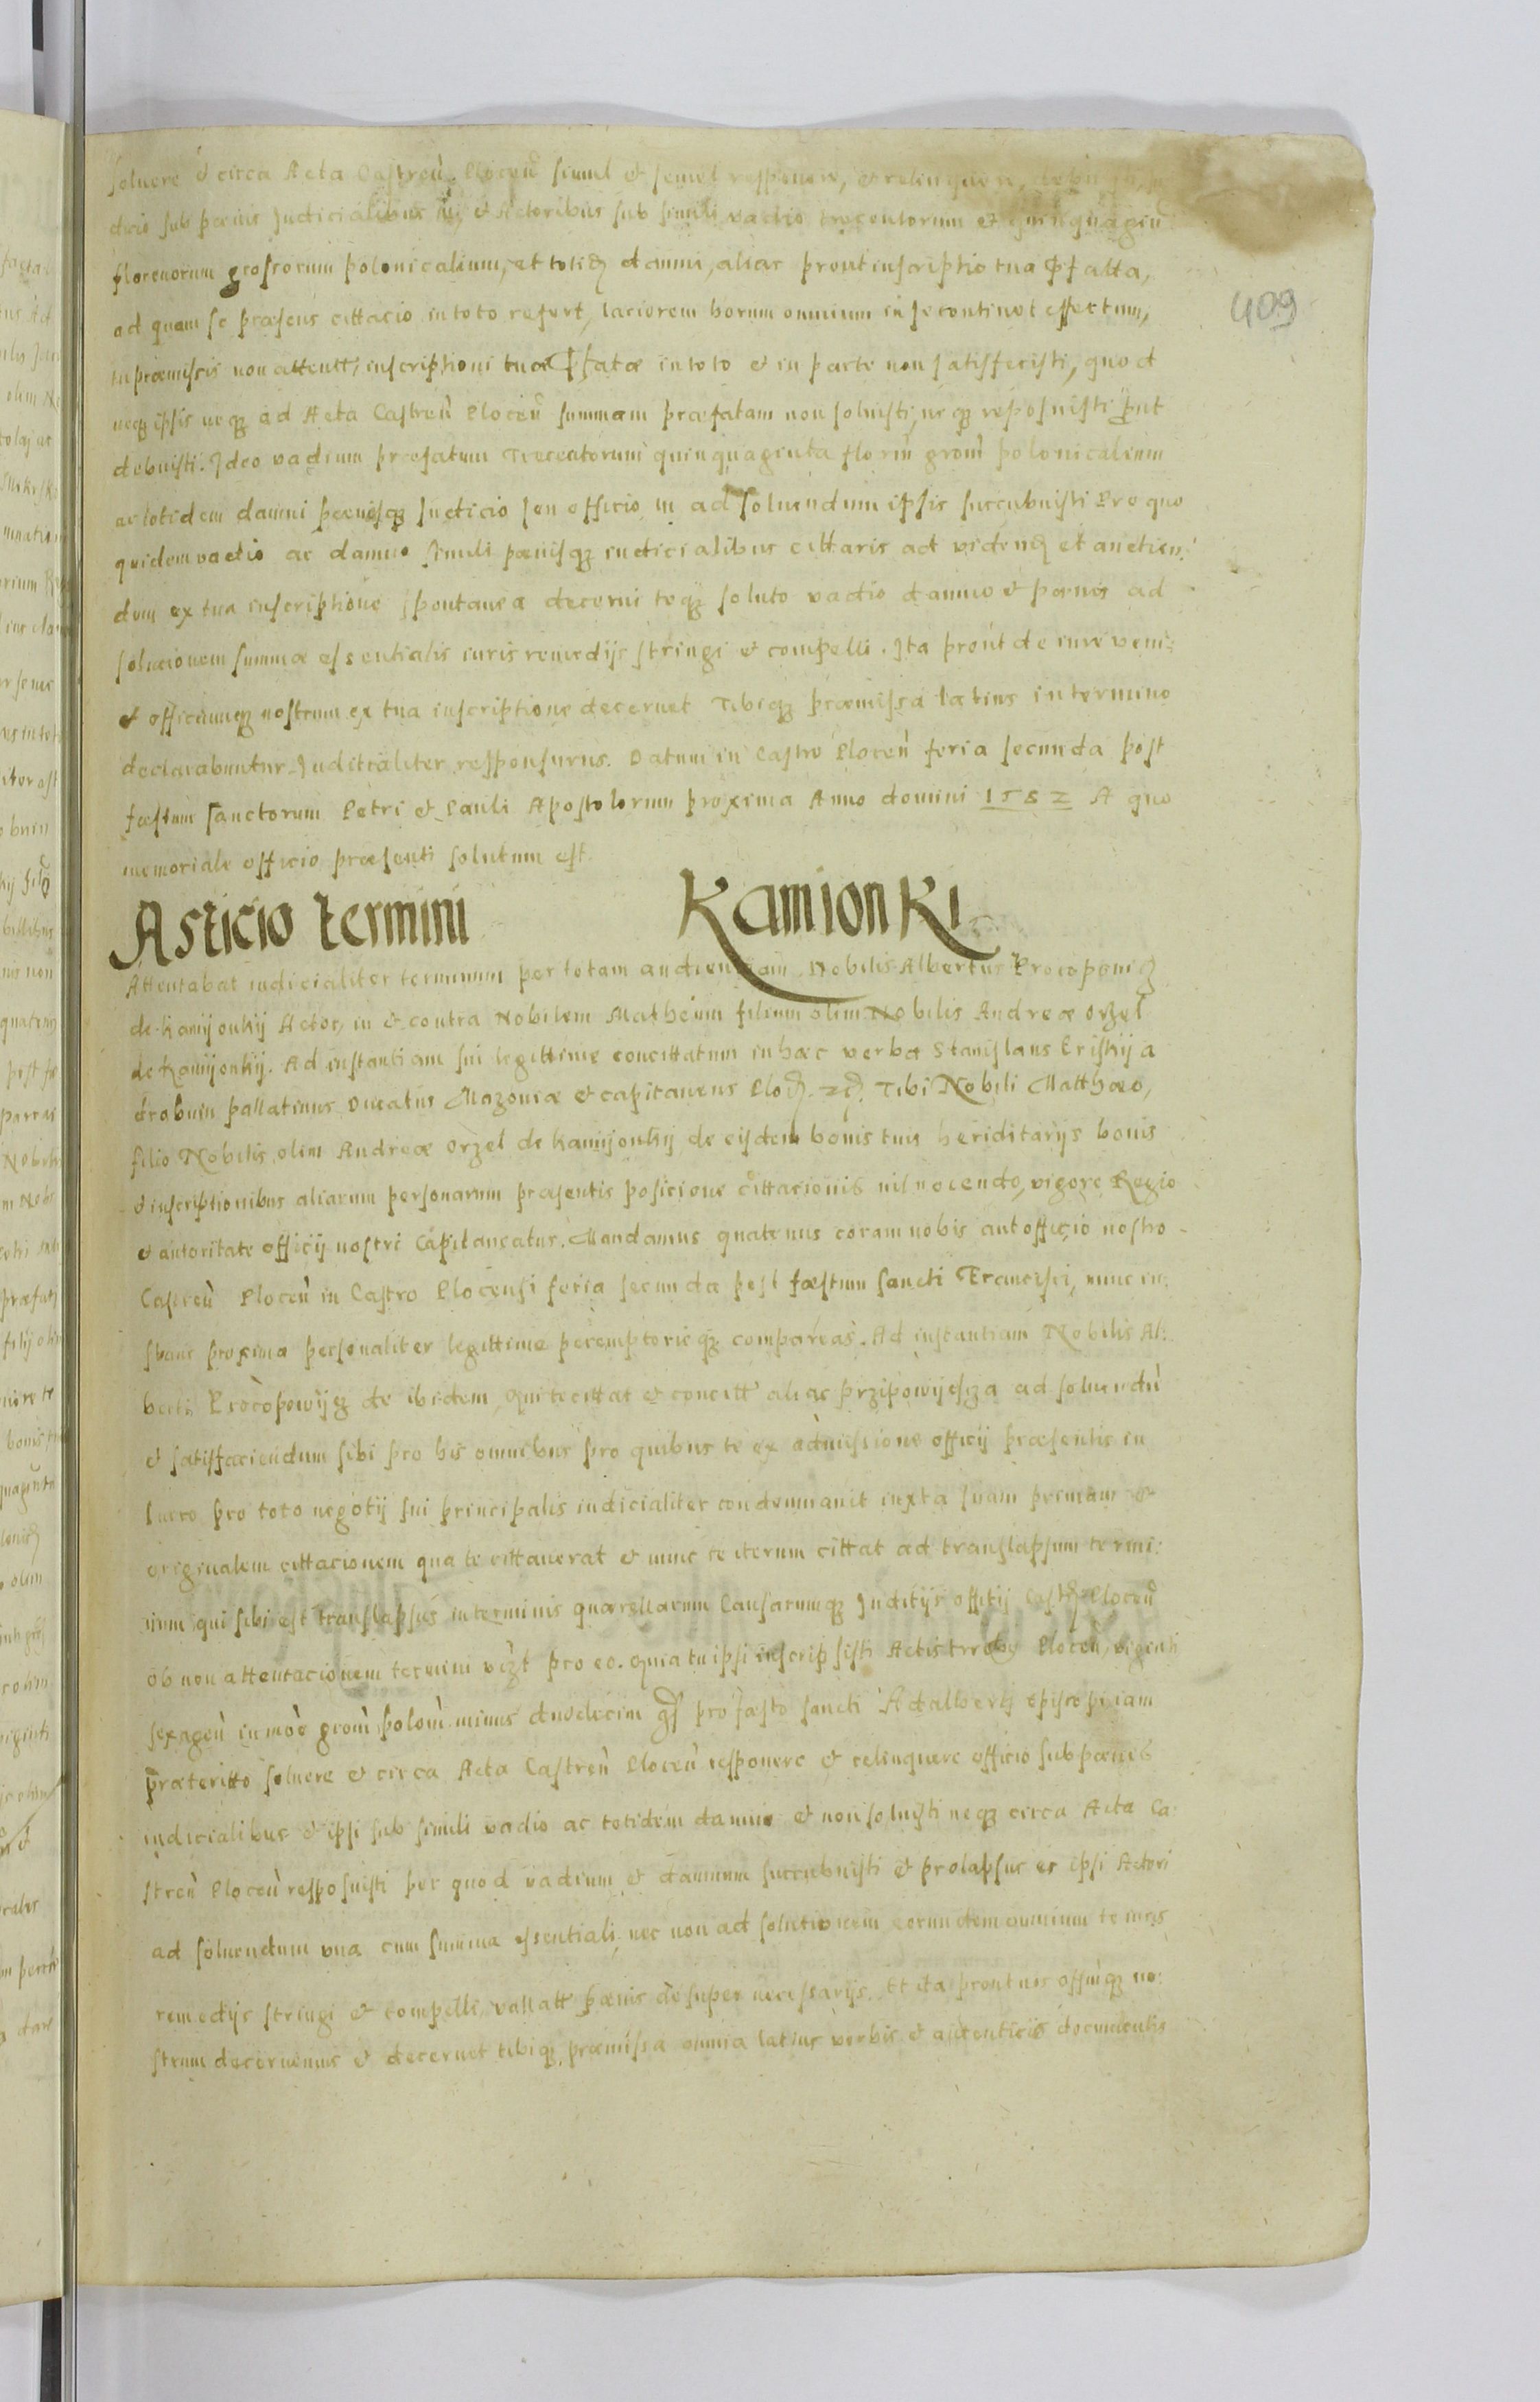 soluere et circa Acta Castreñ Plocen̄ simul et semel repponere, et relinquere,
dicio sub pœnis Judicialibus et Actoribus sub simili vadio trecentorum et quinquagin
florenorum grossorum polonicalium, et totidē damni, alias prout inscriptio tua p̄fatta,
ad quam se præsens cittacio in toto refert, laciorem horum omnium in se continet effectum,
tu præmissis non attentt, inscriptioni tuæ p̄fatæ in toto et in parte non satisfecisti, quod
neqz ipsis neqz ad Acta Castreñ Plocen̄ summam præfatam non soluisti, neqz reposuisti p̄ut
debuisti. Ideo vadium præfatum Trecentorum quinquaginta floriñ groñ polonicalium
ac totidem damni pœnisqz Judicio seu officio in ad soluendum ipsis succubuisti Pro quo
quidem vadio ac damno simili pœnisqz iudicialibus cittaris ad videndū et audien:
dum ex tua inscriptione spontanea decerni teqz soluto vadio damno et pœnis ad
soluxionem summæ essentialis iuris remedijs stringi et compelli. Ita prout de iure veni:
et officiumqz nostrum ex tua inscriptione decernet Tibiqz præmissa latius in termino
declarabuntur Judittialiter responsurus. Datum in Castro Ploceñ feria secunda post
fæstum sanctorum Petri et Pauli Apostolorum proxima Anno domini 1582 A quo
memoriale officio præsenti solutum est.
Asticio termini Kamionki
Attentabat iudicialiter terminum per totam audientiam Nobilis Albertus
de Kamijonkij Actor, in et contra Nobilem Matheum filium olim Nobilis Andreæ Orzel
de Kamijonkij. Ad instantiam sui legittime concittatum in hæc verba Stanislaus Kriskij a
drobnin pallatinus Ducatus Mazoviæ et capitaneus Tibi Nobili Matthæo,
filio Nobilis olim Andreæ Orzel de Kamijonkij de eisdem bonis tuis heriditarijs bonis
et inscriptionibus aliarum personarum præsentis posicione cittacionis nil nocendo, vigore Regio
et autoritate officij nostri Capitaneatus. Mandamus quatenus coram nobis aut officio nostro
Castreñ Ploceñ in Castro Plocensi feria secunda post fæstum sancti Francisci, nunc in:
stans proxima personaliter legittime peremptorieqz compareas. Ad instantiam Nobilis Al:
berti Procopowijcz de ibidem, qui te cittat et concitt alias przipowijesza ad soluendū
et satisfaciendum sibi pro his omnibus pro quibus te ex admissione officij præsentis in
lucro pro toto negotij sui principalis iudicialiter condemnauit iuxta suam primam et
originalem cittacionem qua te cittauerat et nunc te iterum cittat ad translapsum termi:
num qui sibi est translapsus in terminis quærellarum Causarumqz Juditijs offitij Plocen̄
ob non attentacionem termini vizt pro eo. Quia tu ipsi inscripsisti Actis Ploceñ, viginti
sexageñ in moē groñ poloñ minus duodecim pro fæsto sancti Adalberti Episcopi iam
præteritto soluere et circa Acta Castreñ Ploceñ repponere et relinquere officio sub pœnis
iudicialibus et ipsi sub simili vadio ac totidem damnis et non soluisti neqz circa Acta Ca:
streñ Ploceñ repposuisti per quod vadium et damnum succubuisti et prolapsus es ipsi Actori
ad soluendum vna cum summa essentiali, nec non ad solutionem eorundem omnium te iuris
remedijs stringi et compelli, vallatt pœnis desuper necessarijs. Et ita prout nos offiũqz no:
strum decernemus et decernet tibiqz præmissa omnia latius verbis et autenticis documentis
409